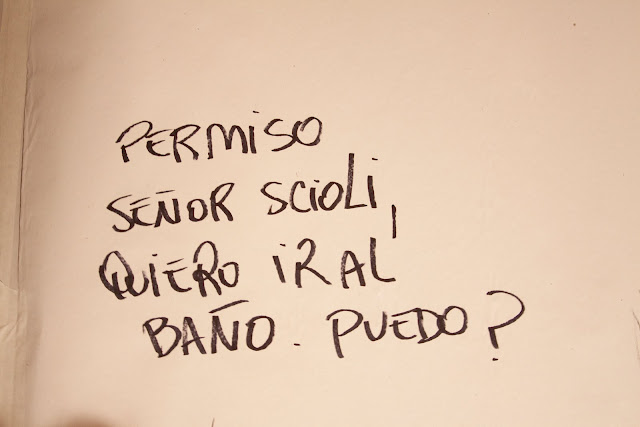 PERMISO
SEÑOR SCIOLI,
QUIERO IR AL
BAÑO. PUEDO?